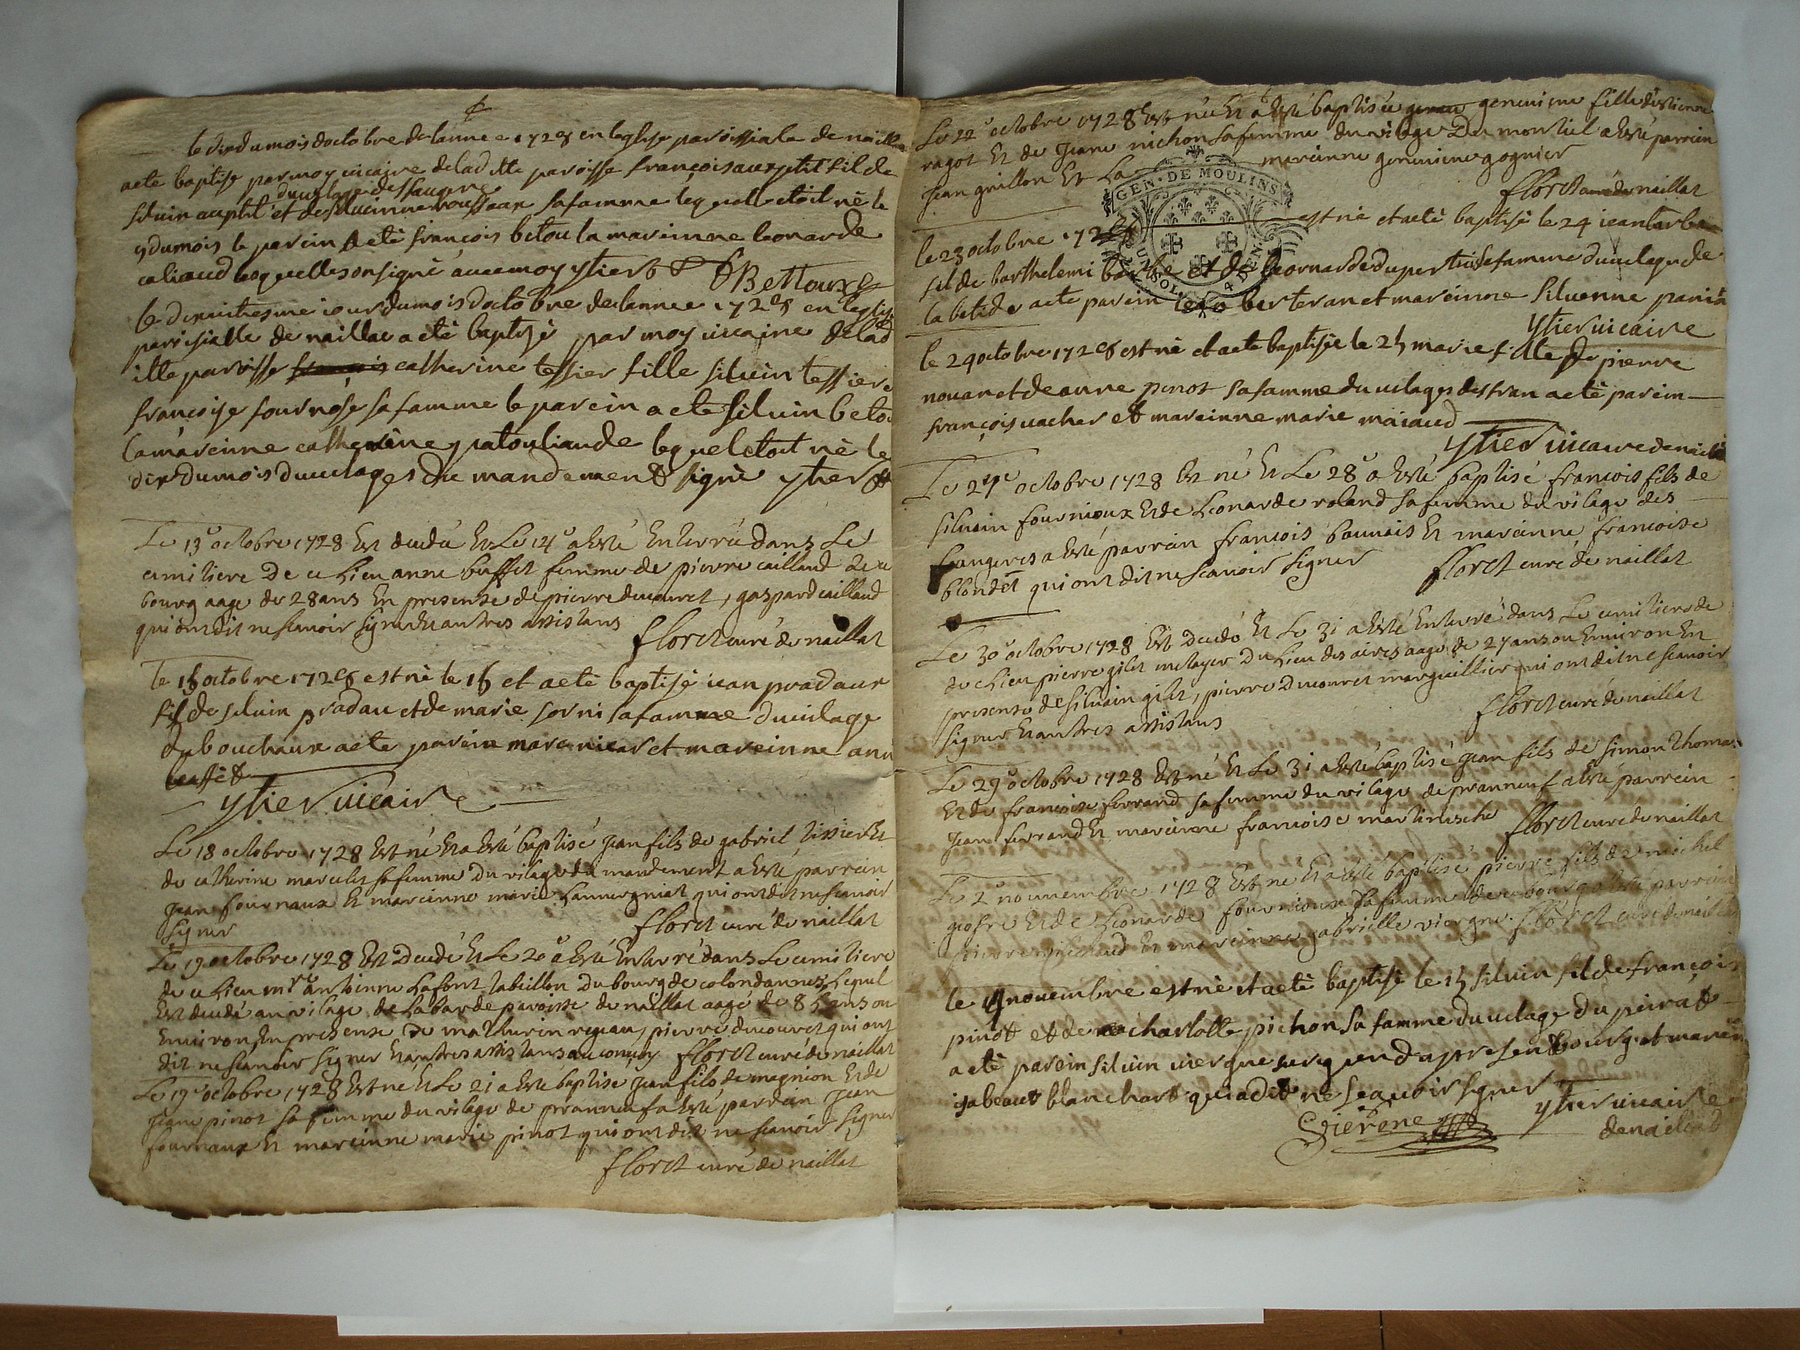 le dix du mois doctobre de lanne e 1728 en leglise parissiale de naillat
a etè baptise par moy vicaire de lad itte paroisse françois aux ptit fil de
du vilage des faugere
siluin auptit et de siluinne rousseau sa famme lequelle etoit nè le
9 dumois le parein a etè françois betou la mareinne leonarde
caliaud lequelles on signè auec moy ytier
BeTToux
le dixuitiesme iour du mois doctobre de lannee 1728 en leglise
parisialle de naillac a etè baptisè par moy vicaire de lad
itte paroisse catherine tessier fille siluin tessier e
françoise fournose sa famme le parein a ete siluin betou
la mareinne catherine patouliaude lequel etoit nè le
dix du mois du uilages du mandement signè ytier
Le 13e octobre 1728 Est decedé Et Le 14e a Esté Enterrée dans Le
cemitiere De ce Lieu anne buffet femme de pierre caillaud de ce
bourg aage de 28 ans En presense de pierre ducouret, gaspard caillaud
qui ont dit ne scauoir signer Et autres assistans
floret curé de naillat
le 15 octobre 1728 est nè le 15 et a etè baptisè iean pradaux
fil de siluin pradau et de marie sorni sa famme du uilage
du bouchaux a ete parein marc nicar et mareinne ann
buffet
ytier vicaire
Le 18 octobre 1728 Est né Et a Esté baptisé jean fils de gabriel tixier Et
de catherine marculet sa femme du vilage du mandement a Esté parrein
jean fournaux Et mareinne marie Lamergniat qui ont dit ne scauoir
signer floret curé de naillat
Le 19 octobre 1728 Est Decedé Et Le 20e a Esté Enterré dans Le cemitiere
de ce Lieu mre antoinne Lafont tabellion du bourg de colondannes Lequel
Est decedé au vilage de Labarde paroisse de naillat aagé de 85 ans ou
Enuiron En presense de mathurin rejeau, pierre ducouret qui ont
dit ne scauoir signer Et autres assistans au conuoy floret curé de naillat
Le 19e octobre 1728 Est né Et Le 21 a Esté baptisé jean fils de magnion Et de
jeanne pinot sa femme du vilage de prannuf a Esté parrain jean
fournaux Et mareinne marie pinot qui ont dit ne scauoir signer
floret curé de naillat
Le 22e octobre 1728 Est née Et a Esté baptisée geneuieue fille d'estienne
ragot Et de jeane nichon sa femme du vilage Du montiel a Esté parrein
jean guillon Et La mareinne geneuieue gognier
floret curé de naillat
GEN. DE MOULINS
le 23 octobre 1728 est nè et a etè baptisè le 24 iean barbe
fil de barthelemi barbe et de leornarde dupertuis sa famme du uilage de
la betide a ete parein leo berteran et mareinne siluenne parin
ytier vicaire
le 24 octobre 1728 est nè et a ete baptisée le 25 marie fille de pierre
nouan et de anne pinot sa famme du uilages des fran a etè parein
françois vacher et mareinne marie maiaud
ytier vicaire de naillat
Le 27e octobre 1728 Est né Et Le 28e a Esté baptisé françois fils de
siluain fournioux Et de Leonarde roland sa femme du vilage des
faugeres a Esté parrein françois baunais Et mareinne françoise
blondet qui ont dit ne scauoir signer floret curé de naillat
Le 30e octobre 1728 Est Decedé Et Le 31 a Esté Enterré dans Le cemitiere de
de ce Lieu pierre gilet metayer Du Lieu des aires aagé de 27 ans ou Enuiron En
presense de siluain gilet, pierre Ducouret marguillier qui ont dit ne scauoir
signer Et autres assistans floret curé de naillat
Le 29e octobre 1728 Est né Et Le 31 a Esté baptisé jean fils de simon thomas
Et de françoise ferrand sa femme du vilage de prannuf a Esté parrein
jean ferrand Et mareinne françoise martinesche floret curé de naillat
Le 2e nouuembre 1728 Est né Et a Esté baptisé pierre fils de michel
geofre Et de Leonarde fournioux sa femme de ce bourg a Esté parrein
pierre michaud Et mareinne gabrielle viergne floret curé de naillat
le nouembre est nè et a etè baptisè le 15 siluin fil de françois
pinot et de charlotte pichon sa famme du uilage du peirat
a etè parein siluin viergne a presen bourg et marein
isabeau blanchart qui a dit ne seauoir signer
ytier vicaire
de naillat